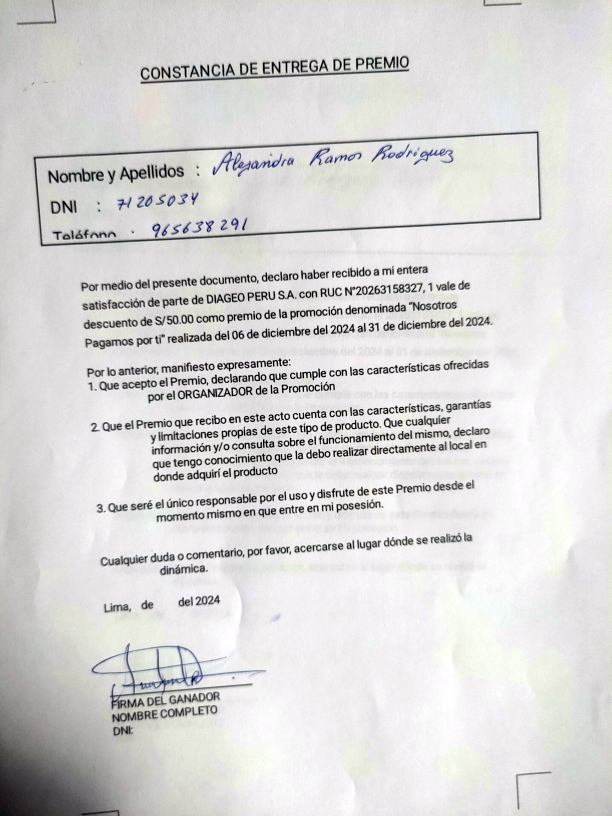 CONSTANCIA DE ENTREGA DE PREMIO
Nombre y Apellidos : Alejandra Ramos Rodriguez
DNI : 71205034
Teléfono : 965638291
Por medio del presente documento, declaro haber recibido a mi entera
satisfacción de parte de DIAGEO PERU S.A. con RUC N°20263158327, 1 vale de
descuento de S/50.00 como premio de la promoción denominada "Nosotros
Pagamos por ti" realizada del 06 de diciembre del 2024 al 31 de diciembre del 2024.
Por lo anterior, manifiesto expresamente:
1. Que acepto el Premio, declarando que cumple con las características ofrecidas
por el ORGANIZADOR de la Promoción
2. Que el Premio que recibo en este acto cuenta con las características, garantías
y limitaciones propias de este tipo de producto. Que cualquier
información y/o consulta sobre el funcionamiento del mismo, declaro
que tengo conocimiento que la debo realizar directamente al local en
donde adquirí el producto
3. Que seré el único responsable por el uso y disfrute de este Premio desde el
momento mismo en que entre en mi posesión.
Cualquier duda o comentario, por favor, acercarse al lugar dónde se realizó la
dinámica.
Lima, de del 2024
FIRMA DEL GANADOR
NOMBRE COMPLETO
DNI: